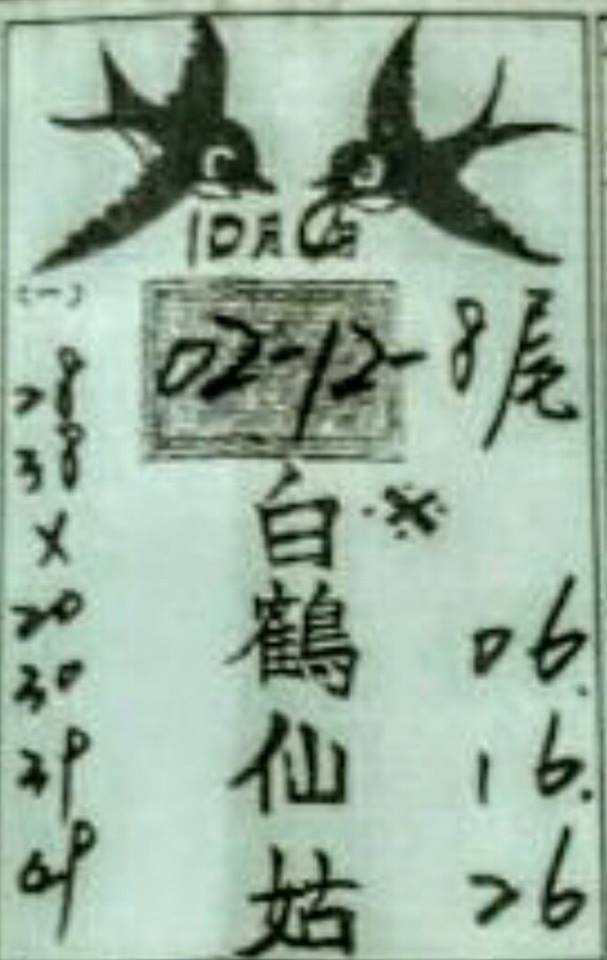 10月6日
(一)
02-12-8尾
28
38
X
20
30
39
09
白鶴仙姑
※
06.
16.
26